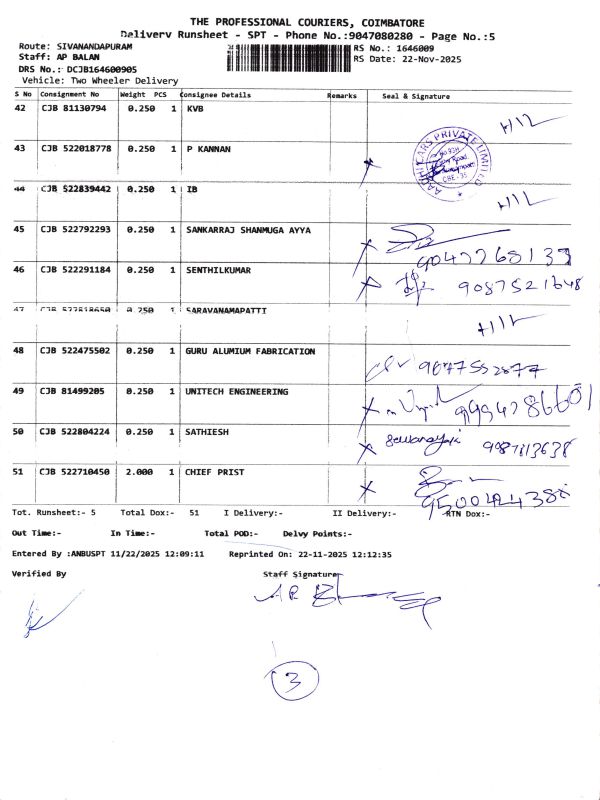 THE PROFESSIONAL COURIERS, COIMBATORE
Delivery Runsheet - SPT - Phone No.:9047080280 - Page No.:5
Route: SIVANANDAPURAM RS No.: 1646009
Staff: AP BALAN RS Date: 22-Nov-2025
DRS No.: DCJB164600905
Vehicle: Two Wheeler Delivery
S No Consignment No Weight PCS Consignee Details Remarks Seal & Signature
42 CJB 81130794 0.250 1 KVB
43 CJB 522018778 0.250 1 P KANNAN
AADHI CARS PRIVATE LIMITED
CBE-35
44 CJB 522839442 0.250 1 IB
45 CJB 522792293 0.250 1 SANKARRAJ SHANMUGA AYYA
46 CJB 522291184 0.250 1 SENTHILKUMAR 9087521648
47 CJB 522818650 0.250 1 SARAVANAMAPATTI
48 CJB 522475502 0.250 1 GURU ALUMIUM FABRICATION
49 CJB 81499205 0.250 1 UNITECH ENGINEERING
50 CJB 522804224 0.250 1 SATHIESH
51 CJB 522710450 2.000 1 CHIEF PRIST
Tot. Runsheet:- 5 Total Dox:- 51 I Delivery:- II Delivery:- RTN Dox:-
Out Time:- In Time:- Total POD:- Delvy Points:-
Entered By :ANBUSPT 11/22/2025 12:09:11 Reprinted On: 22-11-2025 12:12:35
Verified By Staff Signature
3